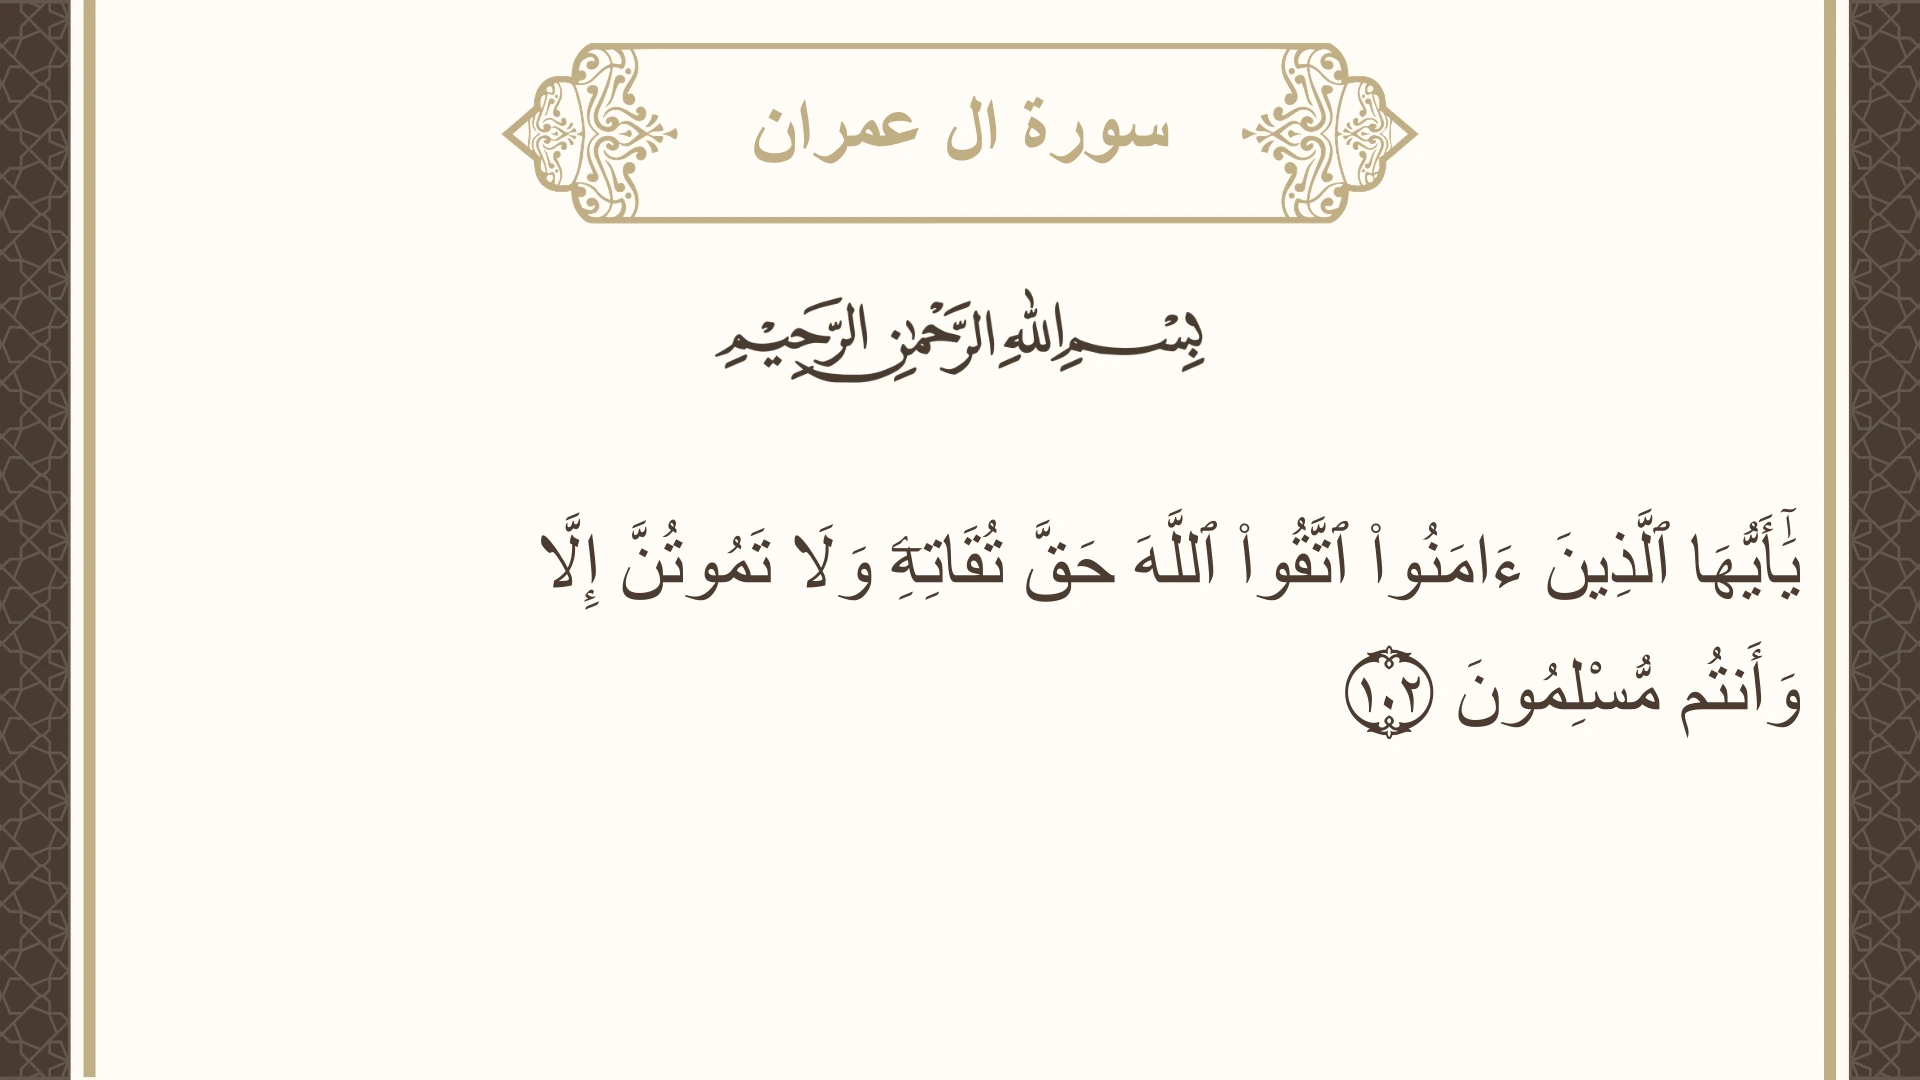 سورة ال عمران
بِسْمِ اللهِ الرَّحْمٰنِ الرَّحِيْمِ
يَٰٓأَيُّهَا ٱلَّذِينَ ءَامَنُوا۟ ٱتَّقُوا۟ ٱللَّهَ حَقَّ تُقَاتِهِۦ وَلَا تَمُوتُنَّ إِلَّا
وَأَنتُم مُّسْلِمُونَ ۝١٠٢